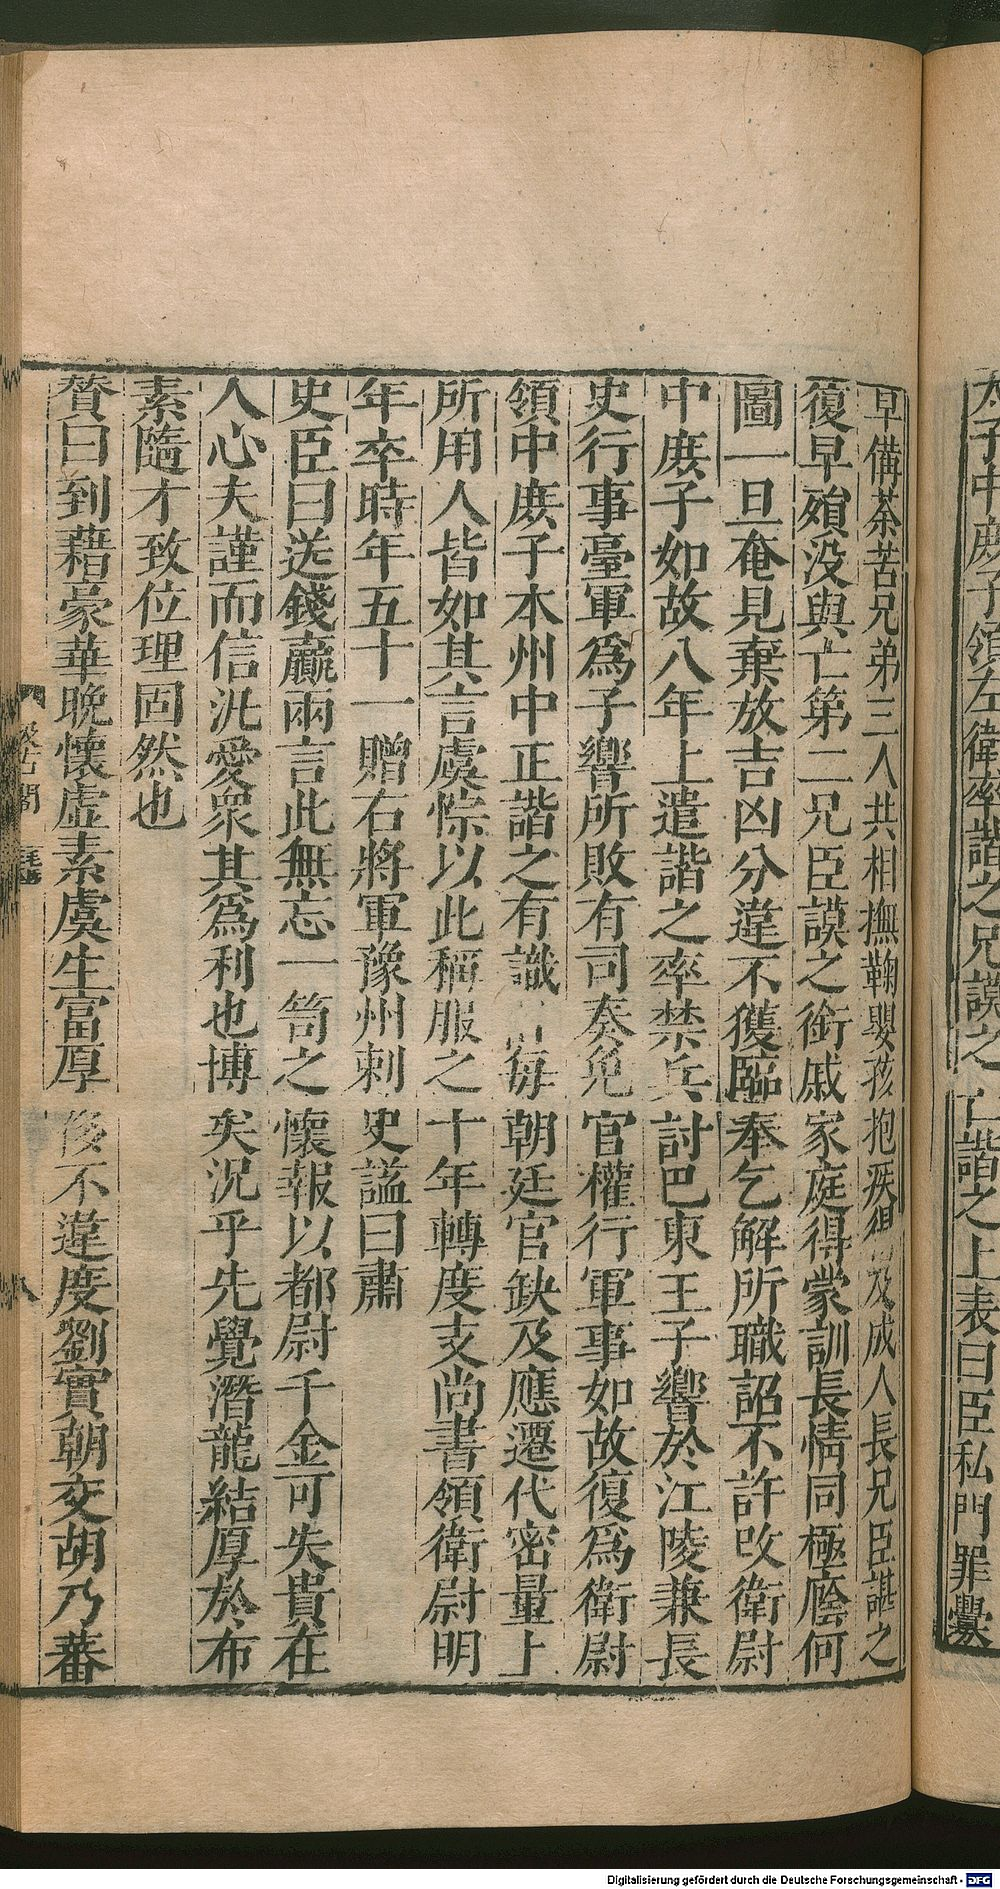 太子中庶子領左衛率諧之兄謨之亡諧之上表曰臣私門罪釁
早備荼苦兄弟三人共相撫鞠嬰孩抱疾得及成人長兄臣諶之
復早殞沒與亡第二兄臣謨之銜戚家庭得蒙訓長情同極廕何
圖一旦奄見棄放吉凶分違不獲臨奉乞解所職詔不許改衛尉
中庶子如故八年上遣諧之率禁兵討巴東王子響於江陵兼長
史行事臺軍爲子響所敗有司奏免官權行軍事如故復爲衛尉
領中庶子本州中正諧之有識 每朝廷官缺及應遷代密量上
所用人皆如其言虞悰以此稱服之十年轉度支尚書領衛尉明
年卒時年五十一贈右將軍豫州刺史謚曰肅
史臣曰送錢贏兩言此無忘一笥之懷報以都尉千金可失貴在
人心夫謹而信汎愛衆其爲利也博矣況乎先覺潛龍結厚於布
素隨才致位理固然也
贊曰到藉豪華晚懷虛素虞生富厚侈不違度劉實朝交胡乃蕃
汲古閣
Digitalisierung gefördert durch die Deutsche Forschungsgemeinschaft - DFG